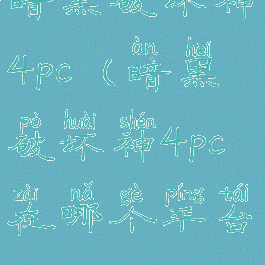 暗黑破坏神
4pc（暗黑
破坏神4pc
在哪个平台
àn hēi
pò huài shén
zài nǎ gè píng tái